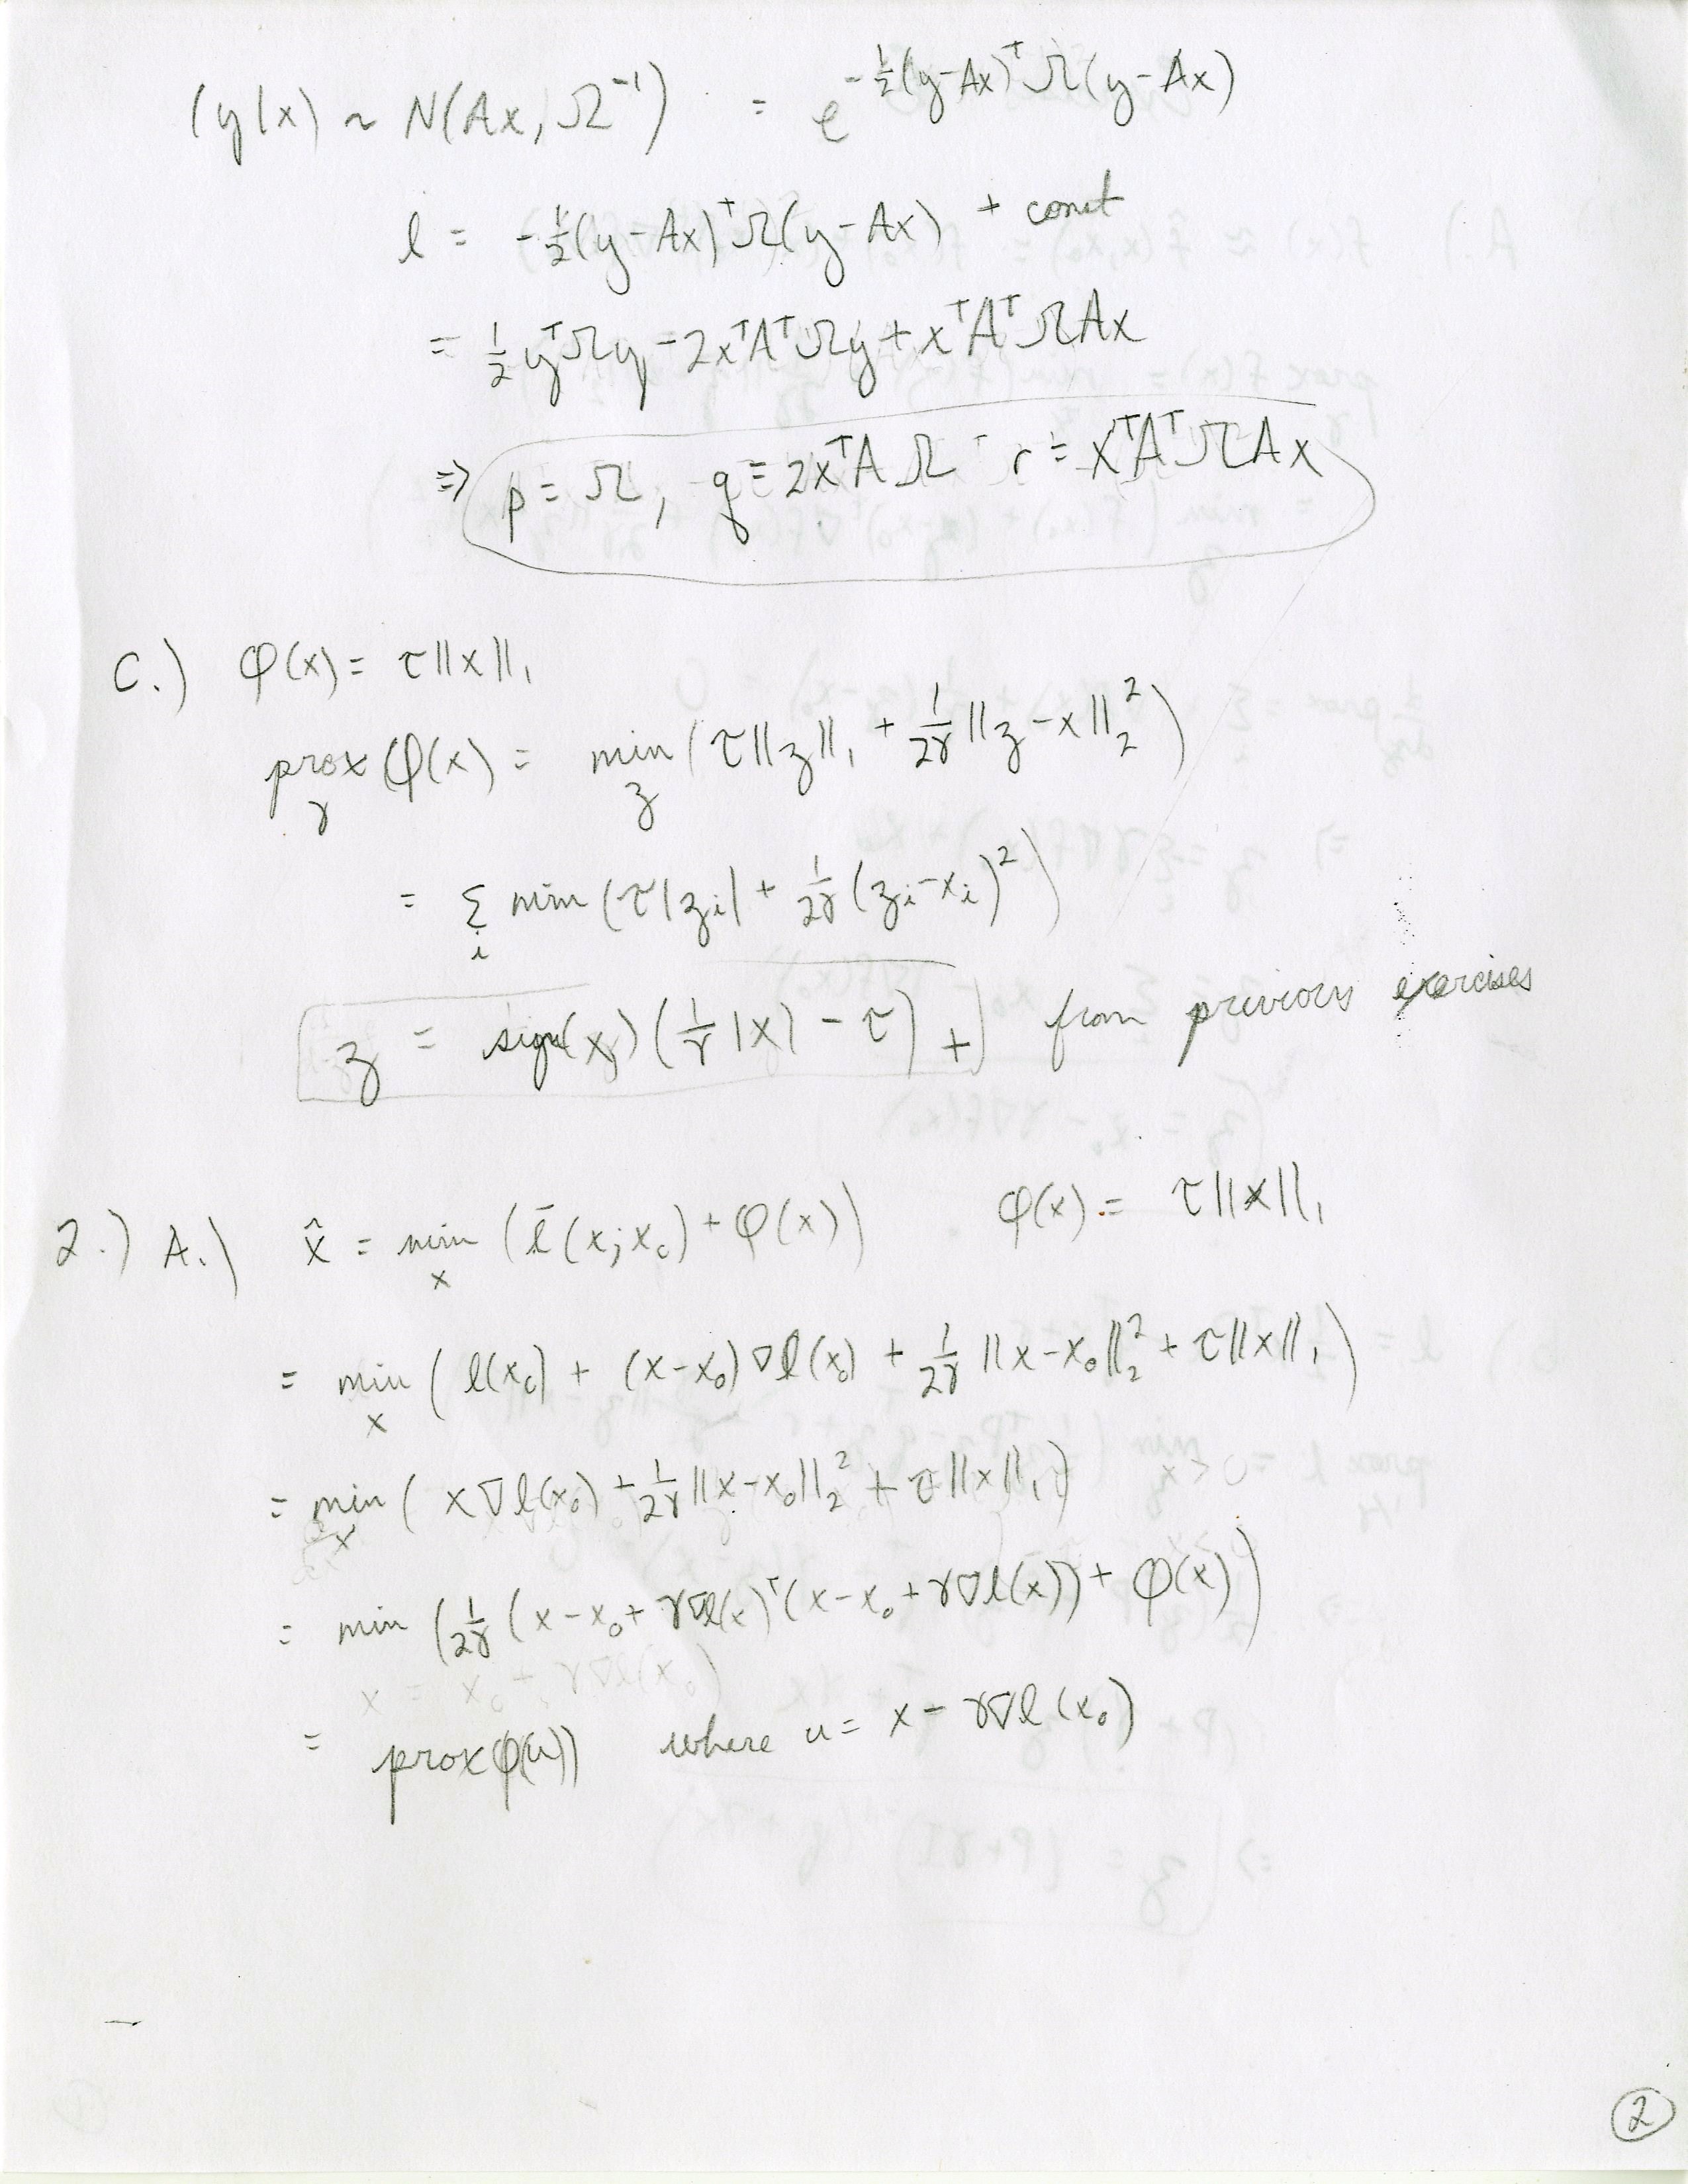 (y|x) ~ N(Ax, Ω⁻¹) = e^{-½(y-Ax)ᵀΩ(y-Ax)}
l = -½(y-Ax)ᵀΩ(y-Ax) + const
= ½yᵀΩy - 2xᵀAᵀΩy + xᵀAᵀΩAx
⇒ p = Ω, q = 2xᵀAΩ r = xᵀAᵀΩAx
C.) φ(x) = τ||x||₁
prox_γ φ(x) = min_z (τ||z||₁ + 1/2γ ||z-x||₂²)
= Σ_i min (τ|z_i| + 1/2γ (z_i-x_i)²)
z = sign(x)(1/γ |x| - τ)₊ from previous exercises
2.) A.) x̂ = min_x (l̄(x; x₀) + φ(x)) φ(x) = τ||x||₁
= min_x (l(x₀) + (x-x₀)∇l(x₀) + 1/2γ ||x-x₀||₂² + τ||x||₁)
= min_x (x∇l(x₀) + 1/2γ ||x-x₀||₂² + τ||x||₁)
= min (1/2γ (x-x₀+γ∇l(x)ᵀ(x-x₀+γ∇l(x)) + φ(x))
x = x₀ + γ∇l(x₀)
= prox φ(u)) where u = x - γ∇l(x₀)
2